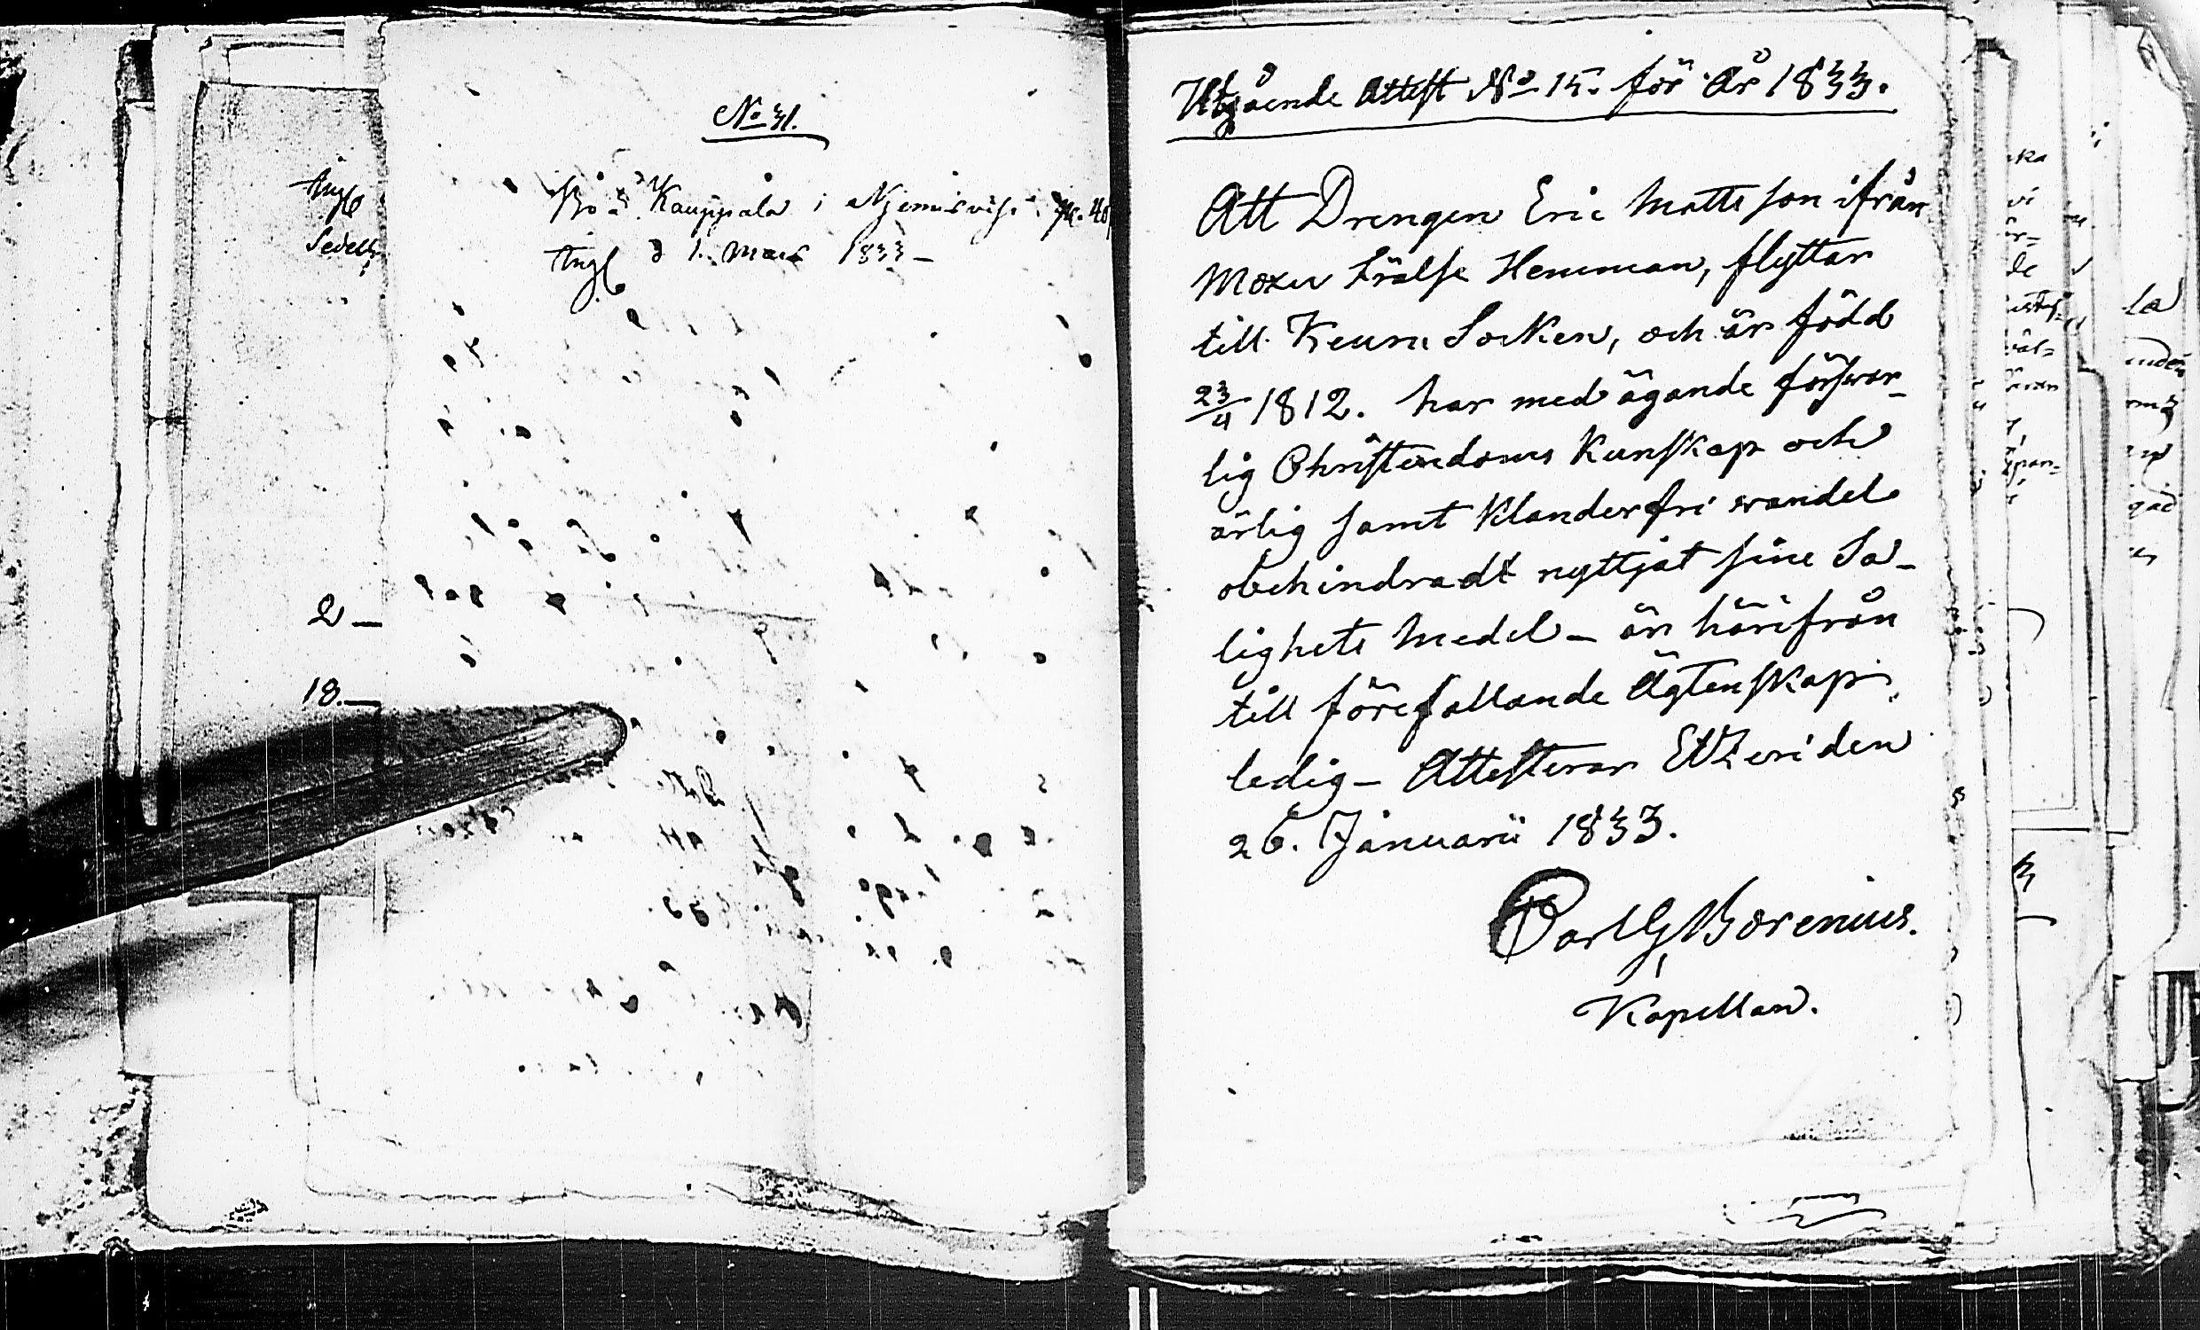 No 31.
Sedell
Kauppala i Njemis
d 1. Mars 1833 –
2 –
18. –
Utgående Attest No 15. för År 1833.
Att Drengen Eric Mattsson ifrån
frälse Hemman, flyttar
till Keuru Socken, och är född
23/4 1812. har med ägande försvar-
lig Christendoms Kunskap och
ärlig samt Klanderfri vandel
obehindradt nyttjat sine Sa-
lighets Medel – är härifrån
till förefallande Ägtenskap
ledig – Attesterar Etzeri den
26. Januarii 1833.
Carl G Borenius.
Kapellan.